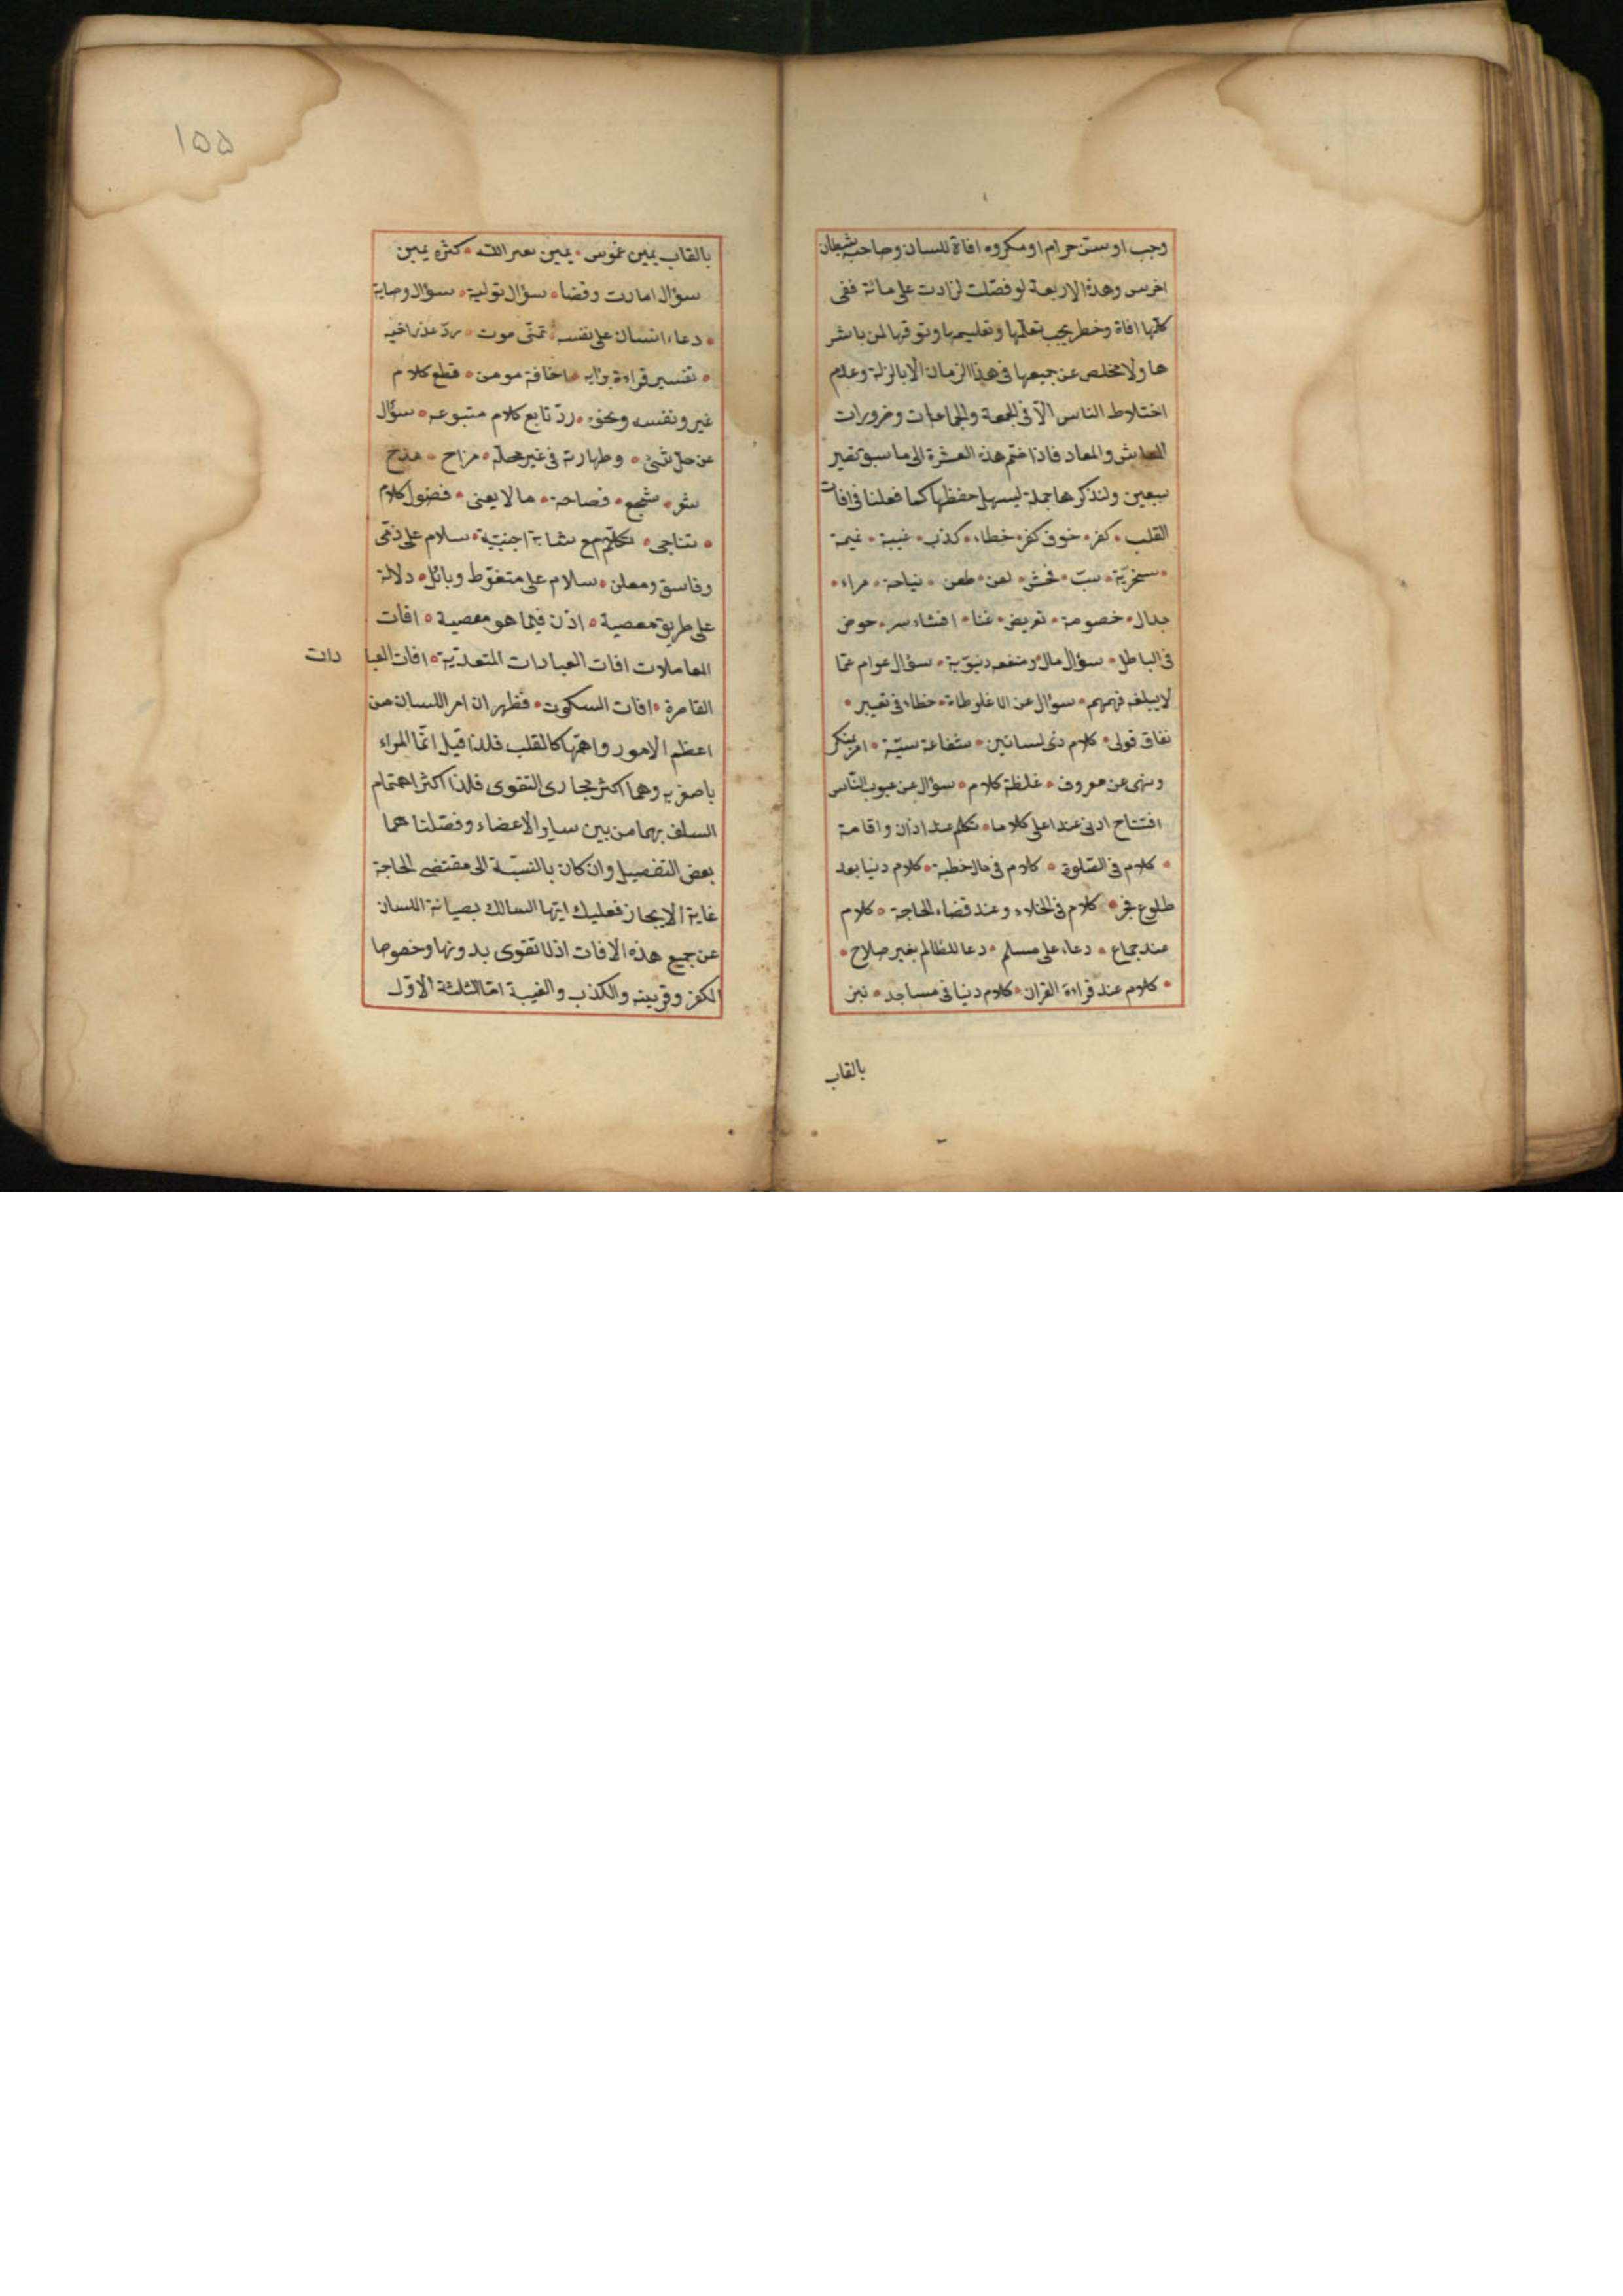 وجب او سنن حرام او مكروه افاة للسان وصاحبه شيطان
اخرس وهذة الاربعة لو فصّلت لزادت على مائة ففى
كلّها افاة وخطر يجب تعلّمها وتعليمها وتوقيها لمن باشر
ها ولا مخلص عن جميعها فى هذا الزمان الا بالزلة وعدم
اختلاط الناس الاّ فى الجمعة والجماعات وضرورات
المعايش والمعاد فاذا ضم هذه العشرة الى ما سبق تصير
سبعين ولنذكرها جملة ليسهل حفظها كما فعلنا فى افات
القلب • كفر • خوف كفر • خطاء • كذب • غيبة • نميمة
• سخريّة • سبّ • فحش • لعن • طعن • نياحة • مراء •
جدال • خصومة • تعريض • غنا • افشاء سر • حوض
فى الباطل • سؤال مال ومنفعه دنيويّة • سؤال عوام عمّا
لا يبلغه فهمهم • سوال عن الاغلوطاة • خطاء فى تعبير •
نفاق قولى • كلام ذى لسانين • شفاعة سيّئة • امر بمنكر
ونهى عن معروف • غلظة كلام • سؤال عن عيوب النّاس
افتتاح ادنى عند اعلى كلاما • تكلم عند اذان واقامة
• كلام فى الصّلوة • كلام فى حال خطبة • كلام دنيا بعد
طلوع فجر • كلام فى الخلاء وعند قضاء الحاجة • كلام
عند جماع • دعاء على مسلم • دعا للظالم بغير صلاح •
• كلام عند قراءة القران • كلام دنيا فى مساجد • نبز
بالقاب
۱۵۵
بالقاب يمين غموس • يمين بغير الله • كثره يمين
سؤال امارت وقضا • سؤال تولية • سؤال وصاية
• دعاء انسان على نفسه • تمنّى موت • ردّ عذر اخيه
• تفسير قراءة برايه • اخافة مومن • قطع كلام
غير ونفسه ونحوه • ردّ تابع كلام متبوعه • سؤال
عن حلّ شئ • وطهارة فى غير محلّه • مزاح • مدح
شعر • سجع • فصاحة • ما لا يعنى • فضول كلام
• تناجى • تكلّم مع شابة اجنبيّة • سلام على ذمّى
وفاسق ومعلن • سلام على متغوّط وبائل • دلالة
على طريق معصية • اذن فيما هو معصية • افات
المعاملات افات العبادات المتعدّية • افات العبا دات
القاصرة • افات السكوت • فظهر ان امر اللسان من
اعظم الامور واهمّها كالقلب فلذا قيل انّما المراء
باصغريه وهما اكثر مجارى التقوى فلذا اكثر اهتمام
السلف بهما من بين ساير الاعضاء وفصّلنا هما
بعض التفصيل وان كان بالنسبّة الى مقتضى الحاجة
غاية الايجاز فعليك ايّها السالك بصيانة اللسان
عن جميع هذه الافات اذ لا تقوى بدونها وخصوصا
الكفر وقرينه والكذب والغيبة امّا الثلثة الاوّل